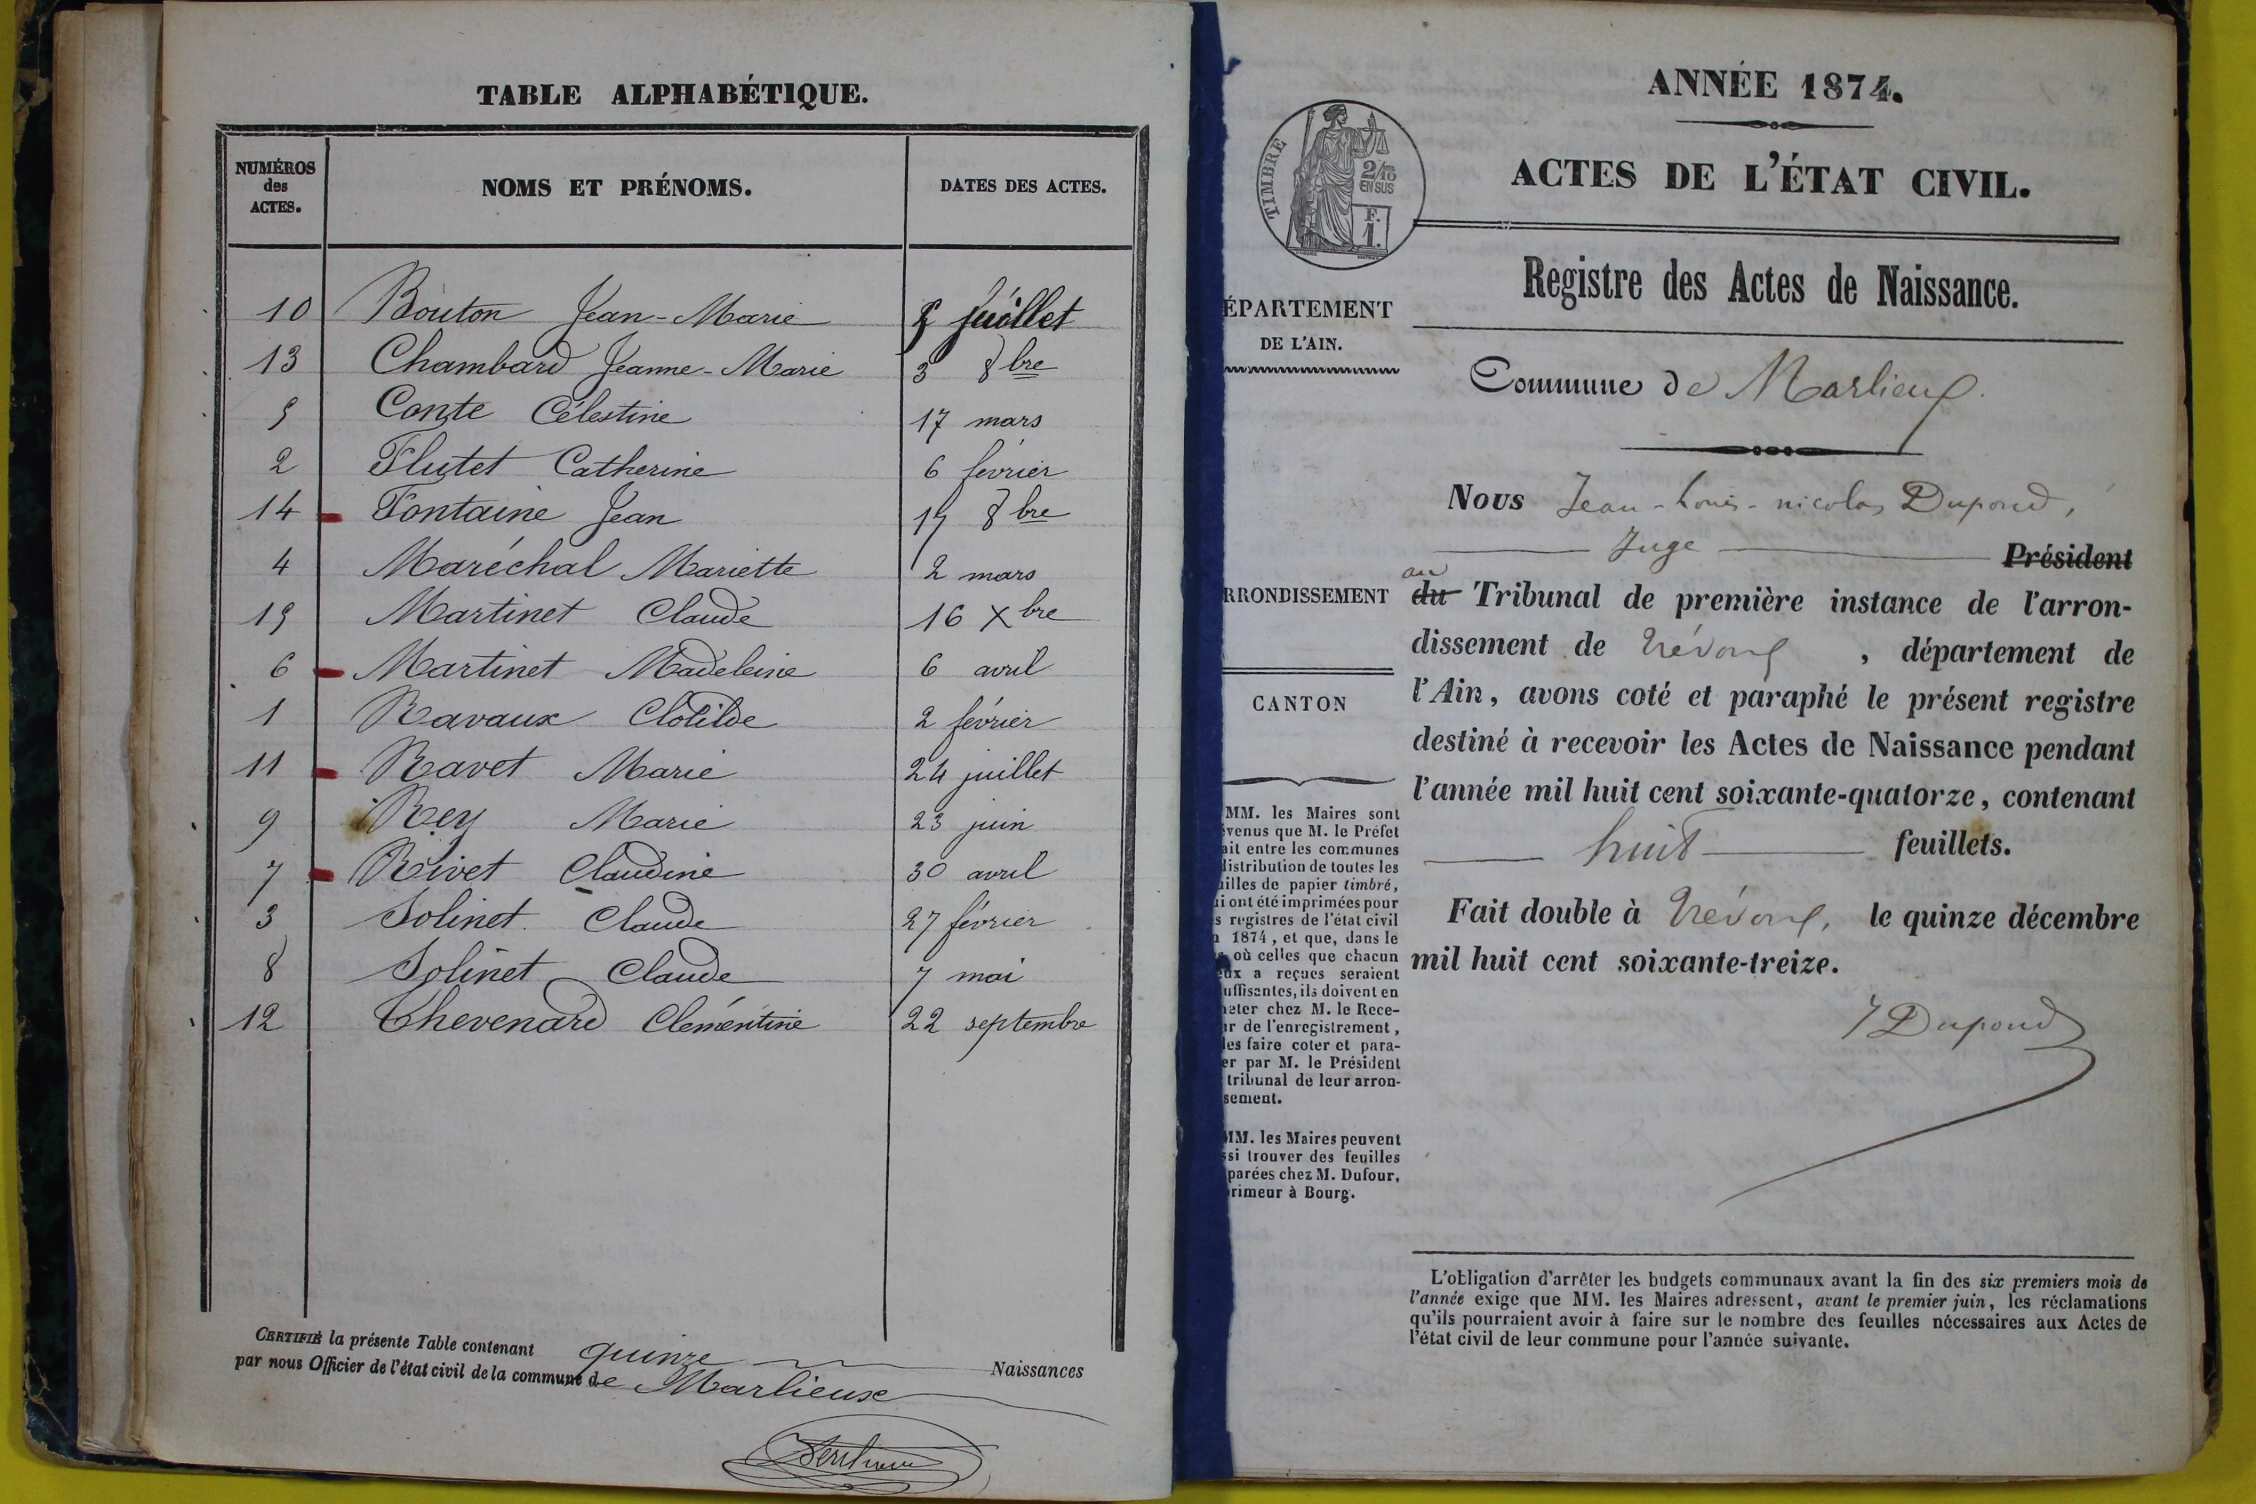 TABLE ALPHABÉTIQUE.
NUMÉROS des ACTES. NOMS ET PRÉNOMS. DATES DES ACTES.
10 Bouton Jean-Marie juillet
13 Chambard Jeanne-Marie 3 8bre
5 Conte Célestine 17 mars
2 Flutet Catherine 6 février
14 Fontaine Jean 8bre
4 Maréchal Mariette 2 mars
15 Martinet Claude 16 Xbre
6 Martinet Madeleine 6 avril
1 Ravaux Clotilde 2 février
11 Ravet Marie 24 juillet
9 Rey Marie 23 juin
7 Rivet Claudine 30 avril
3 Solinet Claude 27 février
8 Solinet Claude 7 mai
12 Thevenard Clémentine 22 septembre
CERTIFIÉ la présente Table contenant quinze Naissances
par nous Officier de l'état civil de la commune de Marlieux
ANNÉE 1874.
ACTES DE L'ÉTAT CIVIL.
TIMBRE
2/10
EN SUS
F.
1.
Registre des Actes de Naissance.
ÉPARTEMENT
DE L'AIN.
Commune de Marlieux.
Nous Jean-Louis-nicolas Dupond,
Juge Président
au
du Tribunal de première instance de l'arron-
dissement de Trévoux, département de
l'Ain, avons coté et paraphé le présent registre
destiné à recevoir les Actes de Naissance pendant
l'année mil huit cent soixante-quatorze, contenant
huit feuillets.
Fait double à Trévoux, le quinze décembre
mil huit cent soixante-treize.
J Dupond
RRONDISSEMENT
CANTON
MM. les Maires sont
venus que M. le Préfet
ait entre les communes
distribution de toutes les
illes de papier timbré,
i ont été imprimées pour
s registres de l'état civil
1874, et que, dans le
où celles que chacun
ux a reçues seraient
uffisantes, ils doivent en
heter chez M. le Rece-
r de l'enregistrement,
les faire coter et para-
er par M. le Président
tribunal de leur arron-
sement.
MM. les Maires peuvent
si trouver des feuilles
parées chez M. Dufour,
rimeur à Bourg.
L'obligation d'arrêter les budgets communaux avant la fin des six premiers mois de
l'année exige que MM. les Maires adressent, avant le premier juin, les réclamations
qu'ils pourraient avoir à faire sur le nombre des feuilles nécessaires aux Actes de
l'état civil de leur commune pour l'année suivante.